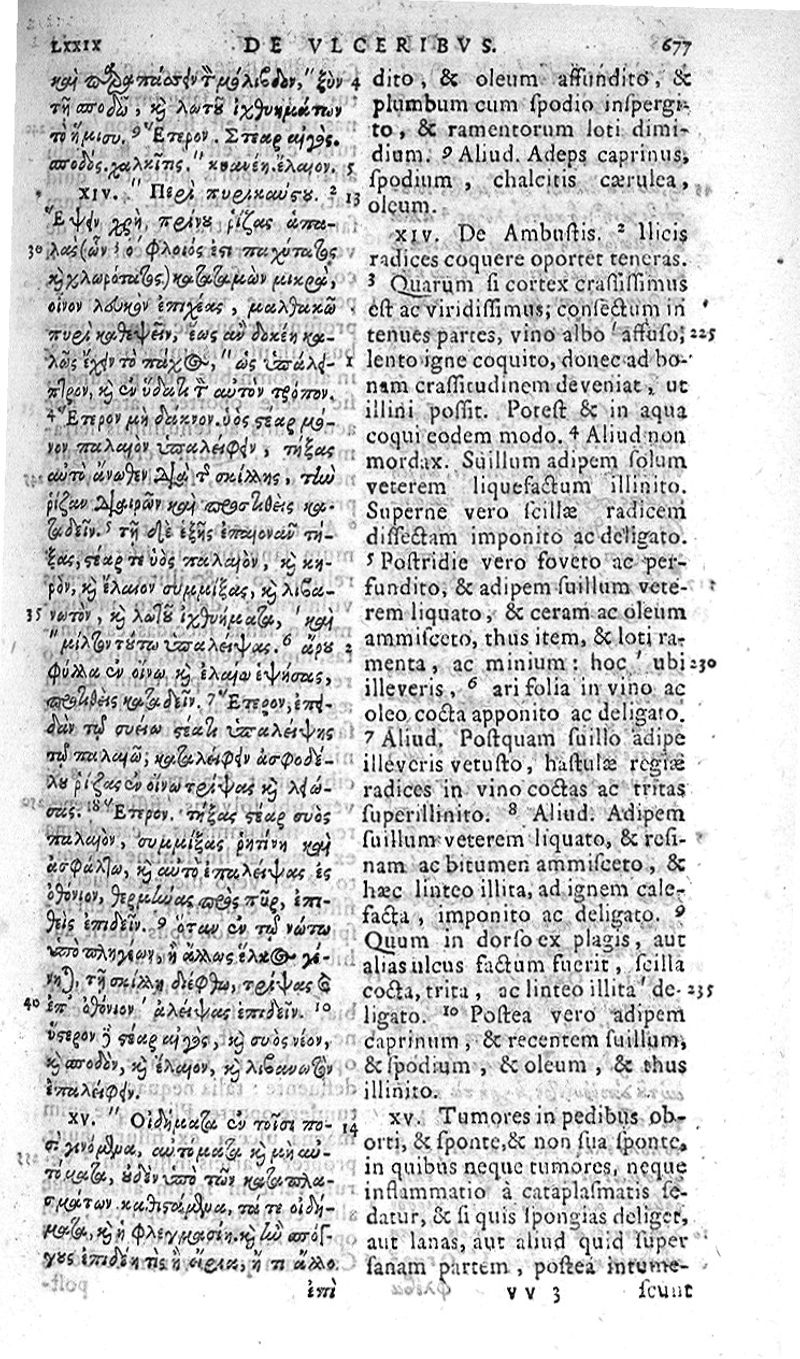 LXXIX DE VLCERIBVS. 677
καὶ παραπάσσειν τ̃ μόλιβδον, " ξὺν 4
τῇ σποδῷ, κ̀ λωτοῦ ἰχθυημάτων
τὸ ἥμισυ. 9 Ἕτερον. Στέαρ αἰγὸς.
σποδὸς. χαλκῖτις. " κυανέη. ἔλαιον. 5
XIV. " Περὶ πυρικαύστου. 2 13
Ἕψειν χρὴ, πρίνου ῥίζας ἁπα-
30 λὰς (ὧν 3 ὁ φλοιός ἐστι παχύτατος
κ̀ χλωρότατος) καταταμὼν μικρὰ,
οἶνον λευκὸν ἐπιχέας, μαλθακῷ
πυρὶ καθεψεῖν, ἕως ἂν δοκέῃ κα-
λῶς ἔχειν τὸ πάχος, " ὡς ὑπαλεί- 1
πτρον, κ̀ ἐν ὕδατι τ̃ αὐτὸν τρόπον.
4 Ἕτερον μὴ δάκνον. ὑὸς στέαρ μό-
νον παλαιὸν ὑπαλείφειν, τήξας
αὐτὸ ἄνωθεν δὲ τ̃ σκίλλης, τὴν
ῥίζαν διαιρῶν καὶ προστιθεὶς κα-
ταδεῖν. 5 τῇ δὲ ἑξῆς ἐπαιονᾶν τή-
ξας, στέαρ τε ὑὸς παλαιὸν, κ̀ κη-
ρὸν, κ̀ ἔλαιον συμμίξας, κ̀ λιβα-
35 νωτὸν, κ̀ λωτοῦ ἰχθυήματα, ' καὶ
" μίλτον τούτῳ ὑπαλείψας. 6 ἄρου 2
φύλλα ἐν οἴνῳ κ̀ ἐλαίῳ ἑψήσας,
προστιθεὶς καταδεῖν. 7 Ἕτερον, ἐπει-
δὰν τῷ συείῳ στέατι ὑπαλείψῃς
τῷ παλαιῷ, καταλείφειν ἀσφοδέ-
λου ῥίζας ἐν οἴνῳ τρίψας κ̀ λειώ-
σας. 8 Ἕτερον. τήξας στέαρ συὸς
παλαιὸν, συμμίξας ῥητίνην καὶ
ἀσφάλτῳ, κ̀ αὐτὸ ἐπαλείψας ἐς
ὀθόνιον, θερμήνας πρὸς πῦρ, ἐπι-
θεὶς ἐπιδεῖν. 9 ὅταν ἐν τῷ νώτῳ
ὑπὸ πληγέων, ἢ ἄλλως ἕλκος γέ-
νηται, τῇ σκίλλῃ διέφθῳ, τρίψας κ̀
40 ἐπ' ὀθόνιον ' ἀλείψας ἐπιδεῖν. 10
ὕστερον δὲ στέαρ αἰγὸς, κ̀ συὸς νέον,
κ̀ σποδὸν, κ̀ ἔλαιον, κ̀ λιβανωτὸν
ἐπαλείφειν.
XV. " Οἰδήματα ἐν τοῖσι πο- 14
σὶ γινόμενα, αὐτόματα κ̀ μὴ αὐ-
τόματα, οὐδὲν ὑπὸ τῶν καταπλα-
σμάτων καθιστάμενα, τά τε οἰδή-
ματα, κ̀ ἡ φλεγμασίη. κ̀ ἢν σπόγ-
γους ἐπιδέῃ τὶς ἢ εἴρια, ἤ τι ἄλλο.
ἐπὶ
dito, & oleum affundito, &
plumbum cum spodio inspergi-
to, & ramentorum loti dimi-
dium. 9 Aliud. Adeps caprinus,
spodium, chalcitis cærulea,
oleum.
XIV. De Ambustis. 2 Ilicis
radices coquere oportet teneras.
3 Quarum si cortex crassissimus
est ac viridissimus; consectum in
tenues partes, vino albo ' affuso, 225
lento igne coquito, donec ad bo-
nam crassitudinem deveniat, ut
illini possit. Potest & in aqua
coqui eodem modo. 4 Aliud non
mordax. Suillum adipem solum
veterem liquefactum illinito.
Superne vero scillæ radicem
dissectam imponito ac deligato.
5 Postridie vero foveto ac per-
fundito, & adipem suillum vete-
rem liquato, & ceram ac oleum
ammisceto, thus item, & loti ra-
menta, ac minium: hoc ' ubi 230
illeveris, 6 ari folia in vino ac
oleo cocta apponito ac deligato.
7 Aliud. Postquam suillo adipe
illeveris vetusto, hastulæ regiæ
radices in vino coctas ac tritas
superillinito. 8 Aliud. Adipem
suillum veterem liquato, & resi-
nam ac bitumen ammisceto, &
hæc linteo illita, ad ignem cale-
facta, imponito ac deligato. 9
Quum in dorso ex plagis, aut
alias ulcus factum fuerit, scilla
cocta, trita, ac linteo illita ' de- 235
ligato. 10 Postea vero adipem
caprinum, & recentem suillum,
& spodium, & oleum, & thus
illinito.
XV. Tumores in pedibus ob-
orti, & sponte, & non sua sponte,
in quibus neque tumores, neque
inflammatio à cataplasmatis se-
datur, & si quis spongias deliget,
aut lanas, aut aliud quid super
sanam partem, postea intume-
VV 3 scunt